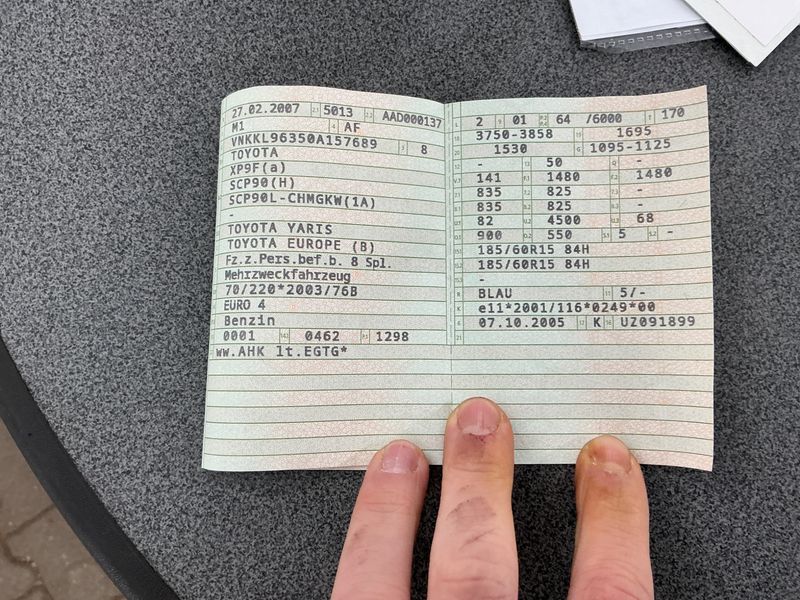 27.02.2007 5013 AAD000137
M1 AF
VNKKL96350A157689 8
TOYOTA
XP9F(a)
SCP90(H)
SCP90L-CHMGKW(1A)
-
TOYOTA YARIS
TOYOTA EUROPE (B)
Fz.z.Pers.bef.b. 8 Spl.
Mehrzweckfahrzeug
70/220*2003/76B
EURO 4
Benzin
0001 0462 1298
ww.AHK lt.EGTG*
2 01 64 /6000 170
3750-3858 1695
1530 1095-1125
- 50 -
141 1480 1480
835 825 -
835 825 -
82 4500 68
900 550 5 -
185/60R15 84H
185/60R15 84H
-
BLAU 5/-
e11*2001/116*0249*00
07.10.2005 K UZ091899